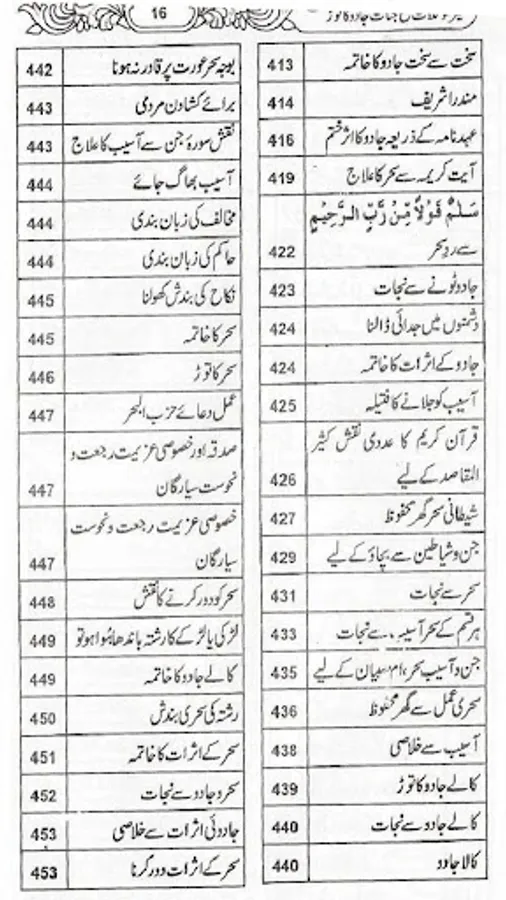 16
جادو کا توڑ
سخت سے سخت جادو کا خاتمہ 413
مندرا شریف 414
عہد نامہ کے ذریعہ جادو کا اثر ختم 416
آیت کریمہ سے سحر کا علاج 419
سَلٰمٌ قَوْلًا مِّنْ رَّبٍّ الرَّحِیْمٍ
سے ردِ سحر 422
جادو ٹونے سے نجات 423
دشمنوں میں جدائی ڈالنا 424
جادو کے اثرات کا خاتمہ 424
آسیب کو جلانے کا فتیلہ 425
قرآن کریم کا عددی نقش کثیر
المقاصد کے لیے 426
شیطانی سحر گھر محفوظ 427
جن و شیاطین سے بچاؤ کے لیے 429
سحر سے نجات 431
ہر قسم کے سحر آسیب سے نجات 433
جن و آسیب سحر، ام الصبیان کے لیے 435
سحری عمل سے گھر محفوظ 436
آسیب سے خلاصی 438
کالے جادو کا توڑ 439
کالے جادو سے نجات 440
کالا جادو 440
بوجہ سحر عورت پر قادر نہ ہونا 442
برائے کشادن مردمی 443
نقش سورۂ جن سے آسیب کا علاج 443
آسیب بھاگ جائے 444
مخالف کی زبان بندی 444
حاکم کی زبان بندی 444
نکاح کی بندش کھولنا 445
سحر کا خاتمہ 445
سحر کا توڑ 446
عمل دعائے حزب البحر 447
صدقہ اور خصوصی عزیمت رجعت و
نحوست سیارگان 447
خصوصی عزیمت رجعت و نحوست
سیارگان 447
سحر کو دور کرنے کا نقش 448
لڑکی یا لڑکے کا رشتہ باندھا ہوا ہو تو 449
کالے جادو کا خاتمہ 449
رشتہ کی سحری بندش 450
سحر کے اثرات کا خاتمہ 451
سحر و جادو سے نجات 452
جادوئی اثرات سے خلاصی 453
سحر کے اثرات دور کرنا 453